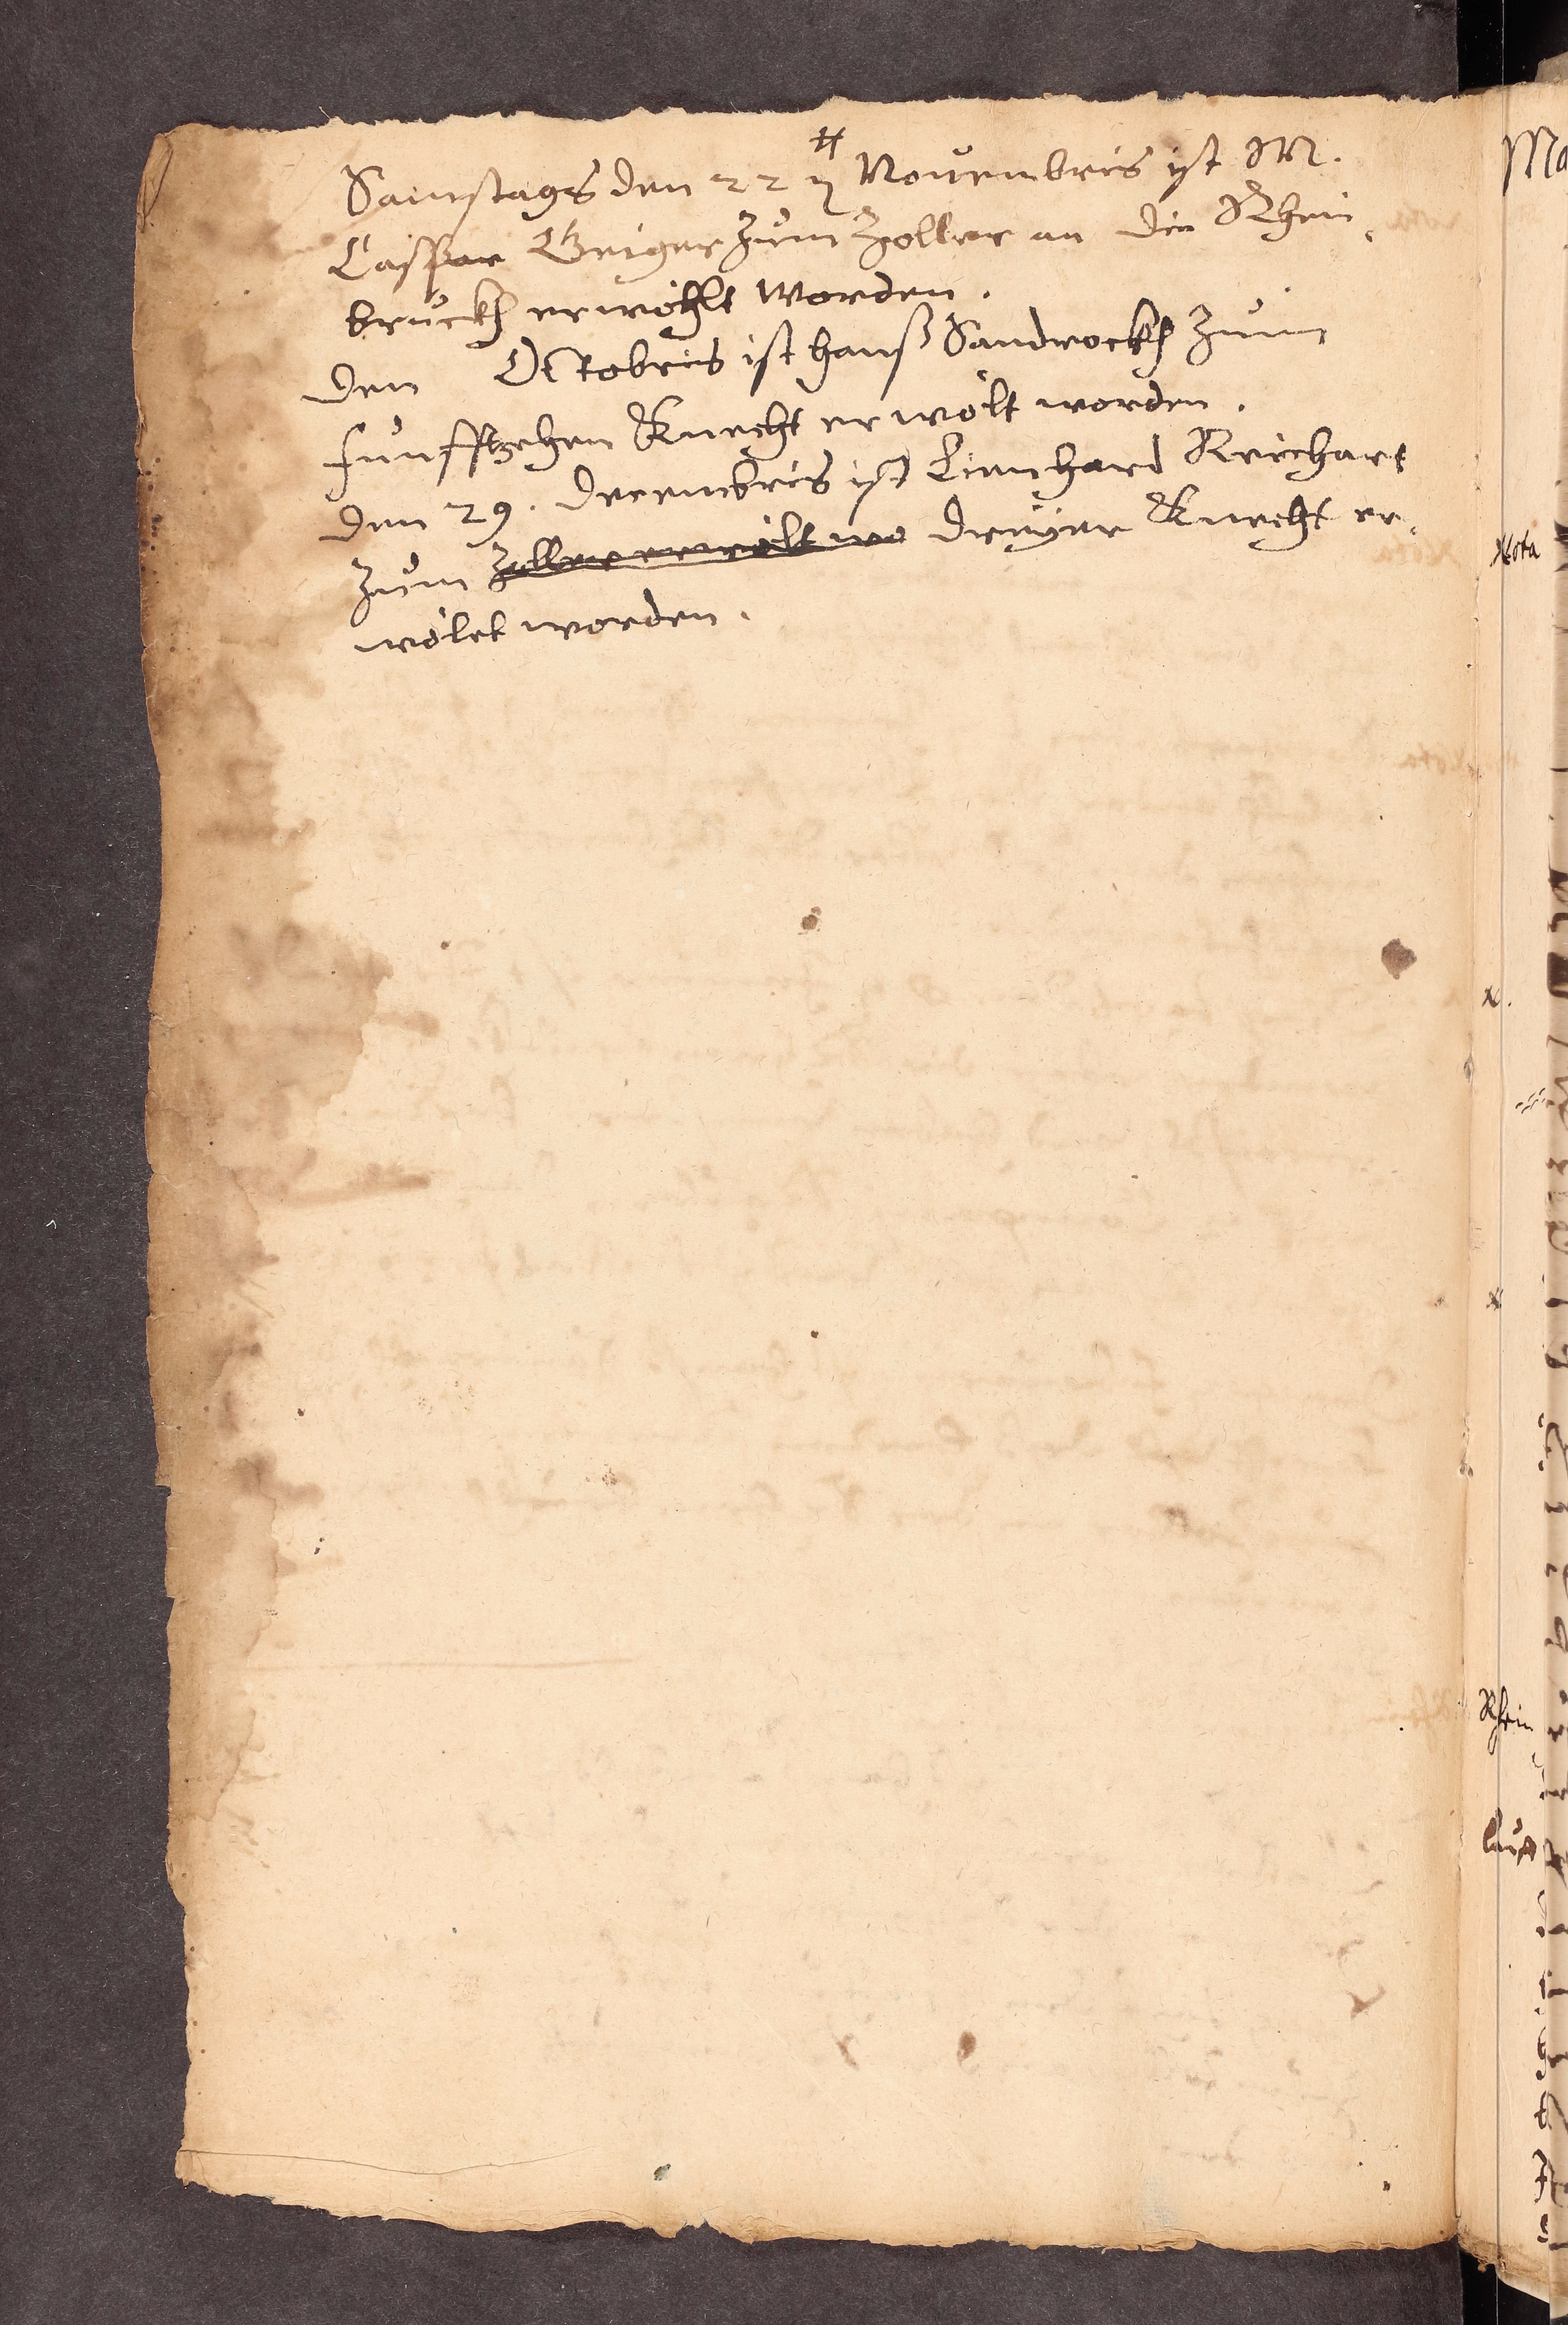 Samstags den 22 Nouembris ist M.
Casspar Geiger zum Zoller an die Rhein
bruckh erwöhlt worden.
den Octobris ist hanß Sandrockh zum
funffzehen Knecht erwölt worden.
den 29. decembris ist Lienhard Reichart
zum Zoller erwölt wo dreyer Knecht er-
wölet worden.
Nota
x.
x
Rhein